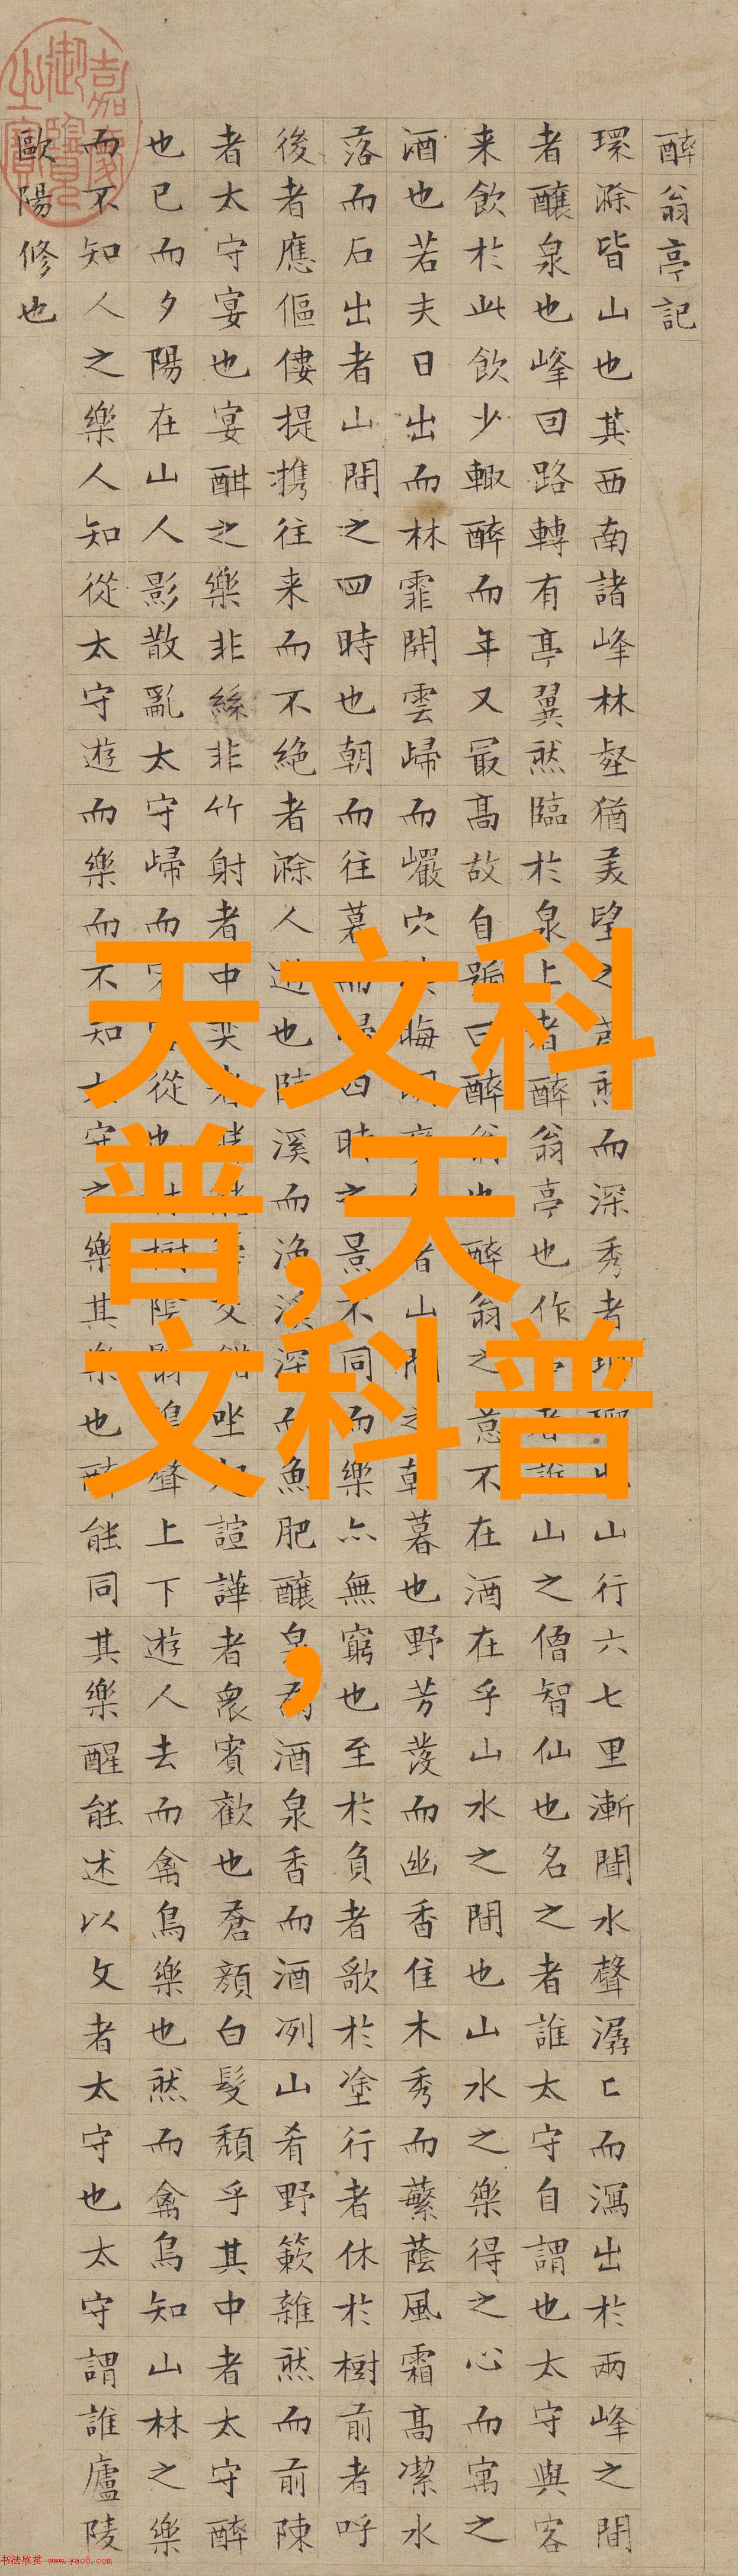 嘉慶御覽之寶
醉翁亭記
環滁皆山也其西南諸峰林壑猶美望之而深秀者山行六七里漸聞水聲潺〻而瀉出於兩峰之間
者釀泉也峰回路轉有亭翼然臨於泉上者醉翁亭也作者山之僧智仙也名之者誰太守自謂也太守與客
来飲於此飲少輙醉而年又最高故自號曰醉翁也醉翁之意不在酒在乎山水之間也山水之樂得之心而寓之
酒也若夫日出而林霏開雲歸而巖穴晦者山間之朝暮也野芳發而幽香佳木秀而繁蔭風霜高潔水
落而石出者山間之四時也朝而往暮而歸四時之景不同而樂亦無窮也至於負者歌於塗行者休於樹前者呼
後者應傴僂提携往来而不絶者滁人遊也臨溪而漁溪深而魚肥釀泉為酒泉香而酒冽山肴野簌雜然而前陳
者太守宴也宴酣之樂非絲非竹射者中奕者交錯坐起諠譁者衆賓歡也蒼顏白髮頹乎其中者太守醉
也已而夕陽在山人影散亂太守歸而從也樹陰翳鳴聲上下遊人去而禽鳥樂也然而禽鳥知山林之樂
而不知人之樂人知從太守遊而樂而不知太守之樂其樂也醉能同其樂醒能述以文者太守也太守謂誰廬陵
歐陽修也
天文科
普,天
文科普
,
书法欣赏 www.yac8.com